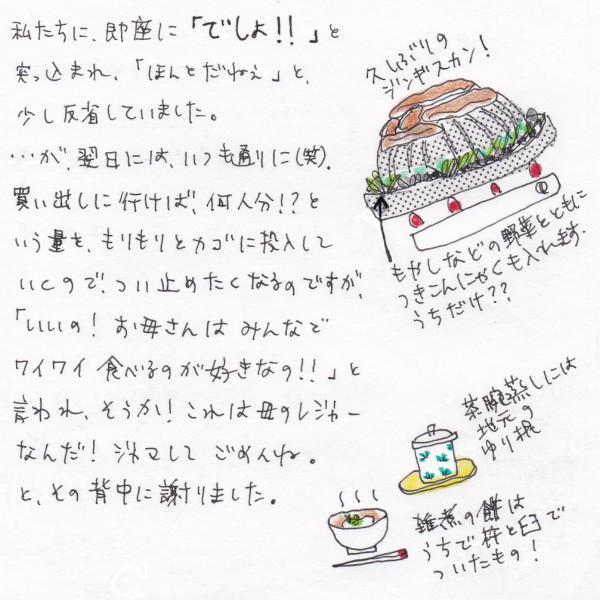 私たちに、即座に「でしょ!!」と
突っ込まれ、「ほんとだねぇ」と、
少し反省していました。
…が、翌日には、いつも通りに(笑)。
買い出しに行けば、何人分!?と
いう量を、もりもりとカゴに投入して
いくので、つい止めたくなるのですが、
「いいの!お母さんはみんなで
ワイワイ食べるのが好きなの!!」と
言われ、そうか!これは母のレジャー
なんだ!ジャマしてごめんね。
と、その背中に謝りました。
久しぶりの
ジンギスカン!
もやしなどの野菜とともに
つきこんにゃくも入れます.
うちだけ??
茶碗蒸しには
地元の
ゆり根
雑煮の餅は
うちで杵と臼で
ついたもの!